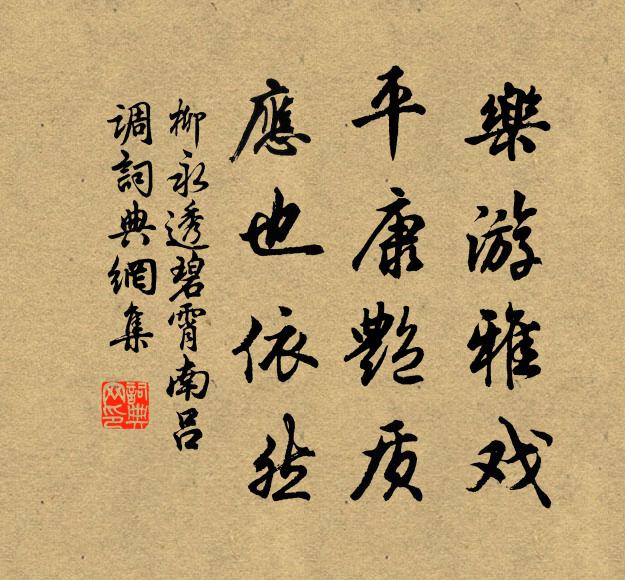 樂游雅戏
平康艷质
應也依然
柳永透碧霄南呂
调詞典網集
詞典
网印